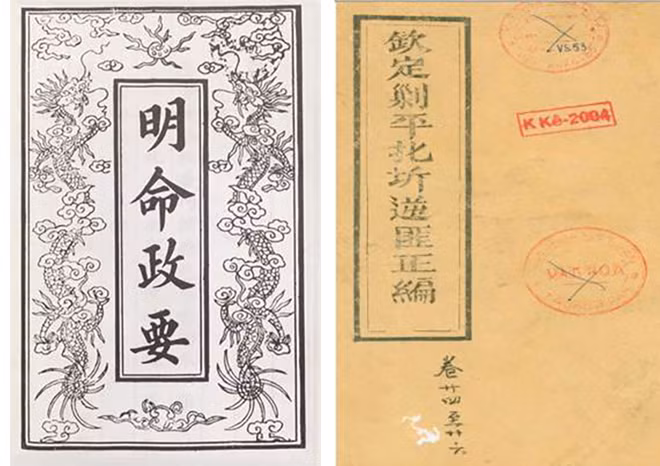 明命政要
欽定剿平北圻逆匪正編
K Kê-2004
卷廿四至廿六